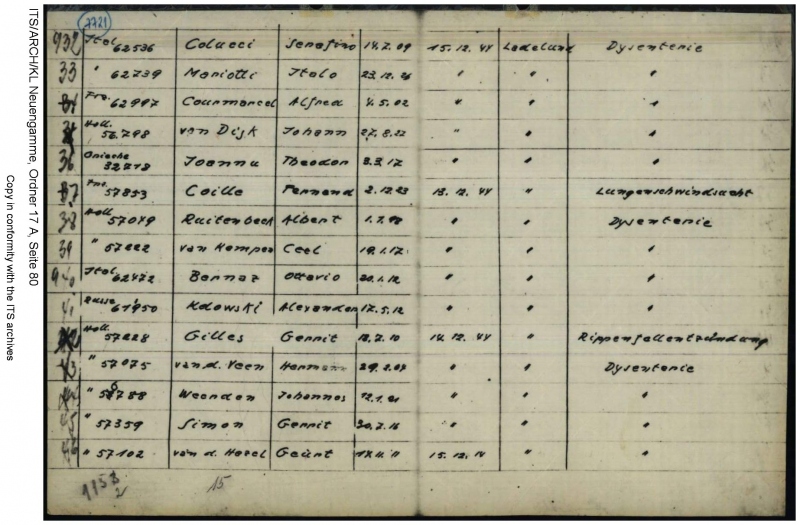 7721
932 Ital 62536 Colucci Serafino 14.7.09 15.12.44 Ladelund Dysenterie
33 " 62739 Mariotti Italo 23.12.26 " " "
34 Frz. 62997 Courmarcel Alfred 4.5.02 " " "
Holl. 56798 van Dijk Johann 27.8.22 " " "
36 Grieche 32718 Joannu Theodor 3.3.17 " " "
37 Frz. 57853 Caille Fernand 2.12.23 13.12.44 " Lungenschwindsucht
38 Holl 57049 Ruitenbeek Albert " " Dysenterie
39 " 57222 van Kampen Ceel 19.1.17 " " "
940 Ital 62472 Bernaz Ottavio 20.1.12 " " "
41 Russe 61950 Kdowski Alexander 17.5.12 " " "
Holl. 57228 Gilles Gerrit 12.7.10 14.12.44 " Rippenfellentzündung
43 " 57075 van d. Veen Hermann 29.2.07 " " Dysenterie
" Weerden Johannes 12.1.21 " " "
45 " 57359 Simon Gerrit 30.7.16 " " "
46 " 57102 van d. Hazel Geurt 15.12.44 " "
15
ITS/ARCH/KL Neuengamme, Ordner 17 A, Seite 80
Copy in conformity with the ITS archives